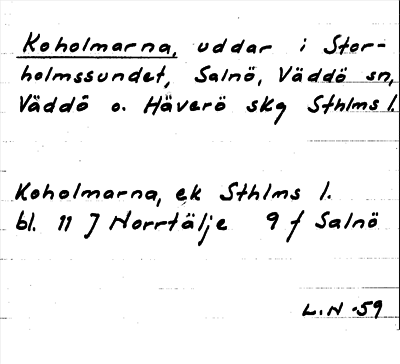 Koholmarna, uddar i Stor-
holmssundet, Salnö, Väddö sn,
Väddö o. Häverö skg Sthlms l.
Koholmarna, ek Sthlms l.
bl. 11 J Norrtälje 9 f Salnö
L.N -59